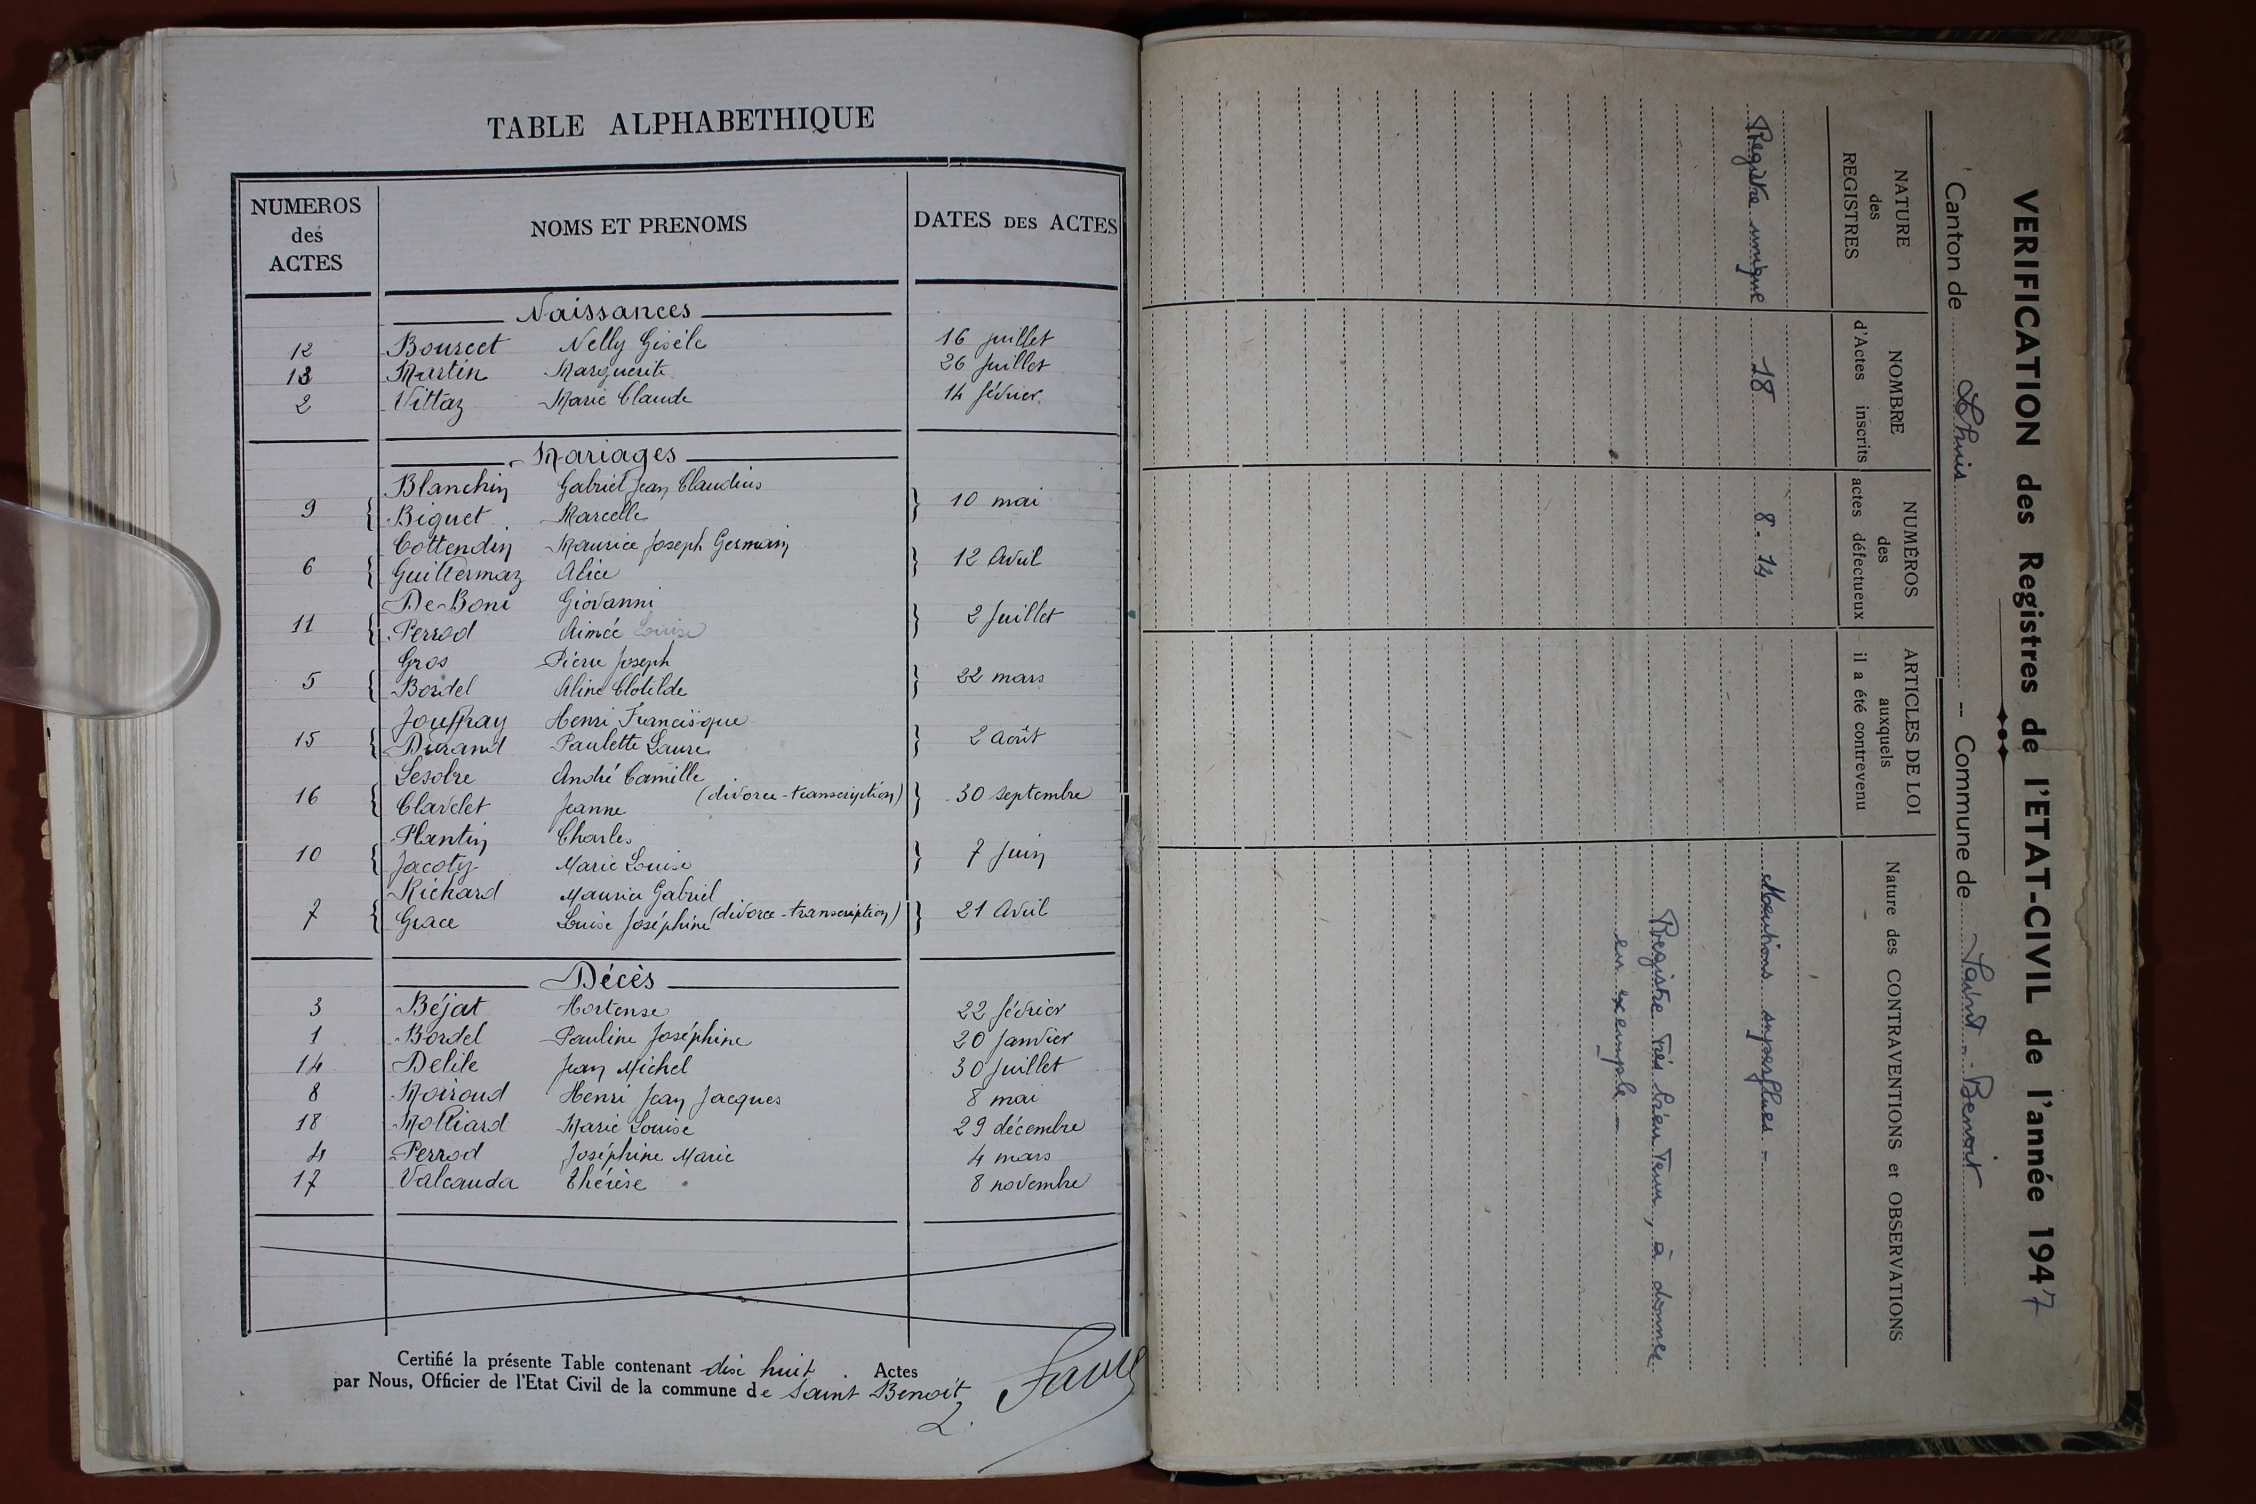 TABLE ALPHABETHIQUE
NUMEROS des ACTES
NOMS ET PRENOMS
DATES DES ACTES
Naissances
12 Bourcet Nelly Gisèle 16 juillet
13 Martin Marguerite 26 Juillet
2 Vittaz Marie Claude 14 février
Mariages
Blanchin Gabriel Jean Claudius
9 { Biguet Marcelle } 10 mai
Cottendin Maurice Joseph Germain
6 { Guillermaz Alice } 12 Avril
De Boni Giovanni
11 { Perrod Aimée Louise } 2 Juillet
Gros Pierre Joseph
5 { Bordel Aline Clotilde } 22 mars
Jouffray Henri Francisque
15 { Durand Paulette Laure } 2 Août
Lesobre André Camille
16 { Clavelet Jeanne (divorce-transcription) } 30 septembre
Plantin Charles
10 { Jacoty Marie Louise } 7 Juin
Richard Maurice Gabriel
7 { Grace Louise Joséphine (divorce-transcription) } 21 Avril
Décès
3 Béjat Hortense 22 février
1 Bordel Pauline Joséphine 20 Janvier
14 Delile Jean Michel 30 Juillet
8 Moiroud Henri Jean Jacques 8 mai
18 Molliard Marie Louise 29 décembre
4 Perrod Joséphine Marie 4 mars
17 Valcauda Thérèse 8 novembre
Certifié la présente Table contenant dix huit Actes
par Nous, Officier de l'Etat Civil de la commune de Saint Benoit
VERIFICATION des Registres de l'ETAT-CIVIL de l'année 1947
Canton de Lhuis -- Commune de Saint-Benoit
NATURE des REGISTRES
NOMBRE d'Actes inscrits
NUMÉROS des actes défectueux
ARTICLES DE LOI auxquels il a été contrevenu
Nature des CONTRAVENTIONS et OBSERVATIONS
Registre unique 18 8-14 Mentions superflues -
Registre très bien tenu, à donner
en exemple -